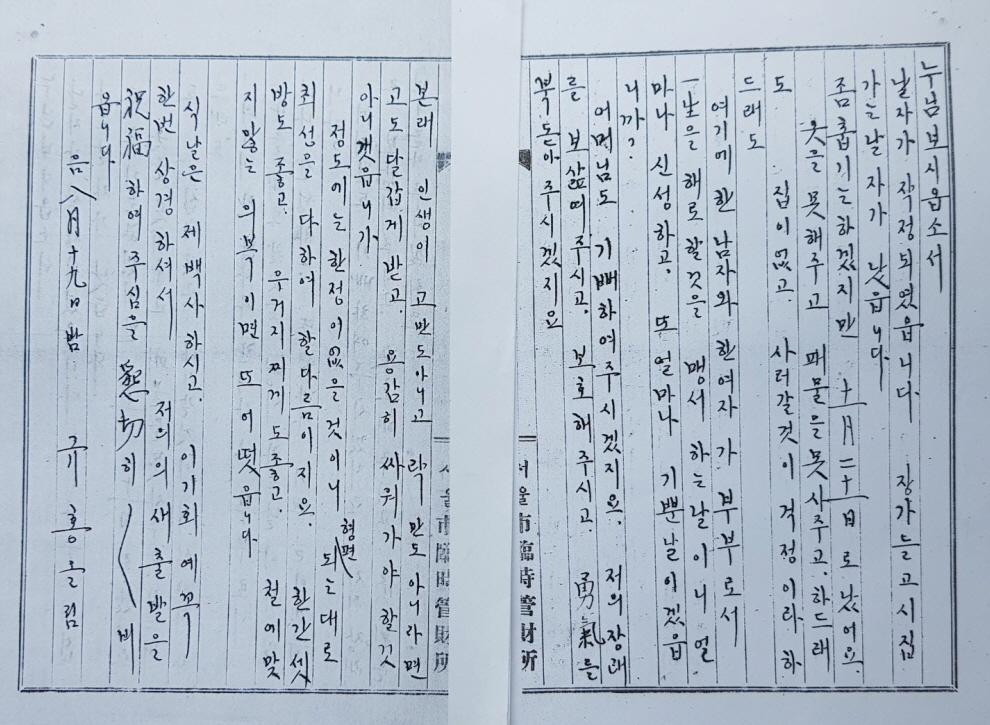 누님보시옵소서
날자가 작정되였읍니다. 장가들고 시집
가는날자가 낫읍니다.
좀 춥기는하겠지만 十一月 二十 日로 났어요
옷을 못해주고 패물을 못사주고, 하드래
도 집이없고. 사러갈것이 걱정이라 하
드래도
여기에 한 남자와 한여자가 부부로서
一生을 해로할것을 맹서하는날이니 얼
마나 신성하고. 또 얼마나 기쁜날이겠읍
니까?
어머님도 기뻐하여주시겠지요. 저의장래
를 보삷펴주시고. 보호해주시고 勇氣를
북돋아주시겠지요
서울市臨時管財所
본래 인생이 고만도아니고 락만도아니라면
고도달갑게받고 용감히 싸워가야할것
아니갯읍니가.
정도에는 한정이없을것이니 형편되는대로
최선을 다하여 할다름이지요. 한간셋
방도 좋고. 우거지찌게도좋고 철에맞
지않는 의복이면 또어떳읍니다.
식날은 제백사하시고. 이기회예꼭
한번 상경하셔서 저의의 새출발을
祝福하여주심을 懇切히 비
읍니다.
음八月十九日밤 기홍올림
서울市臨時管財所